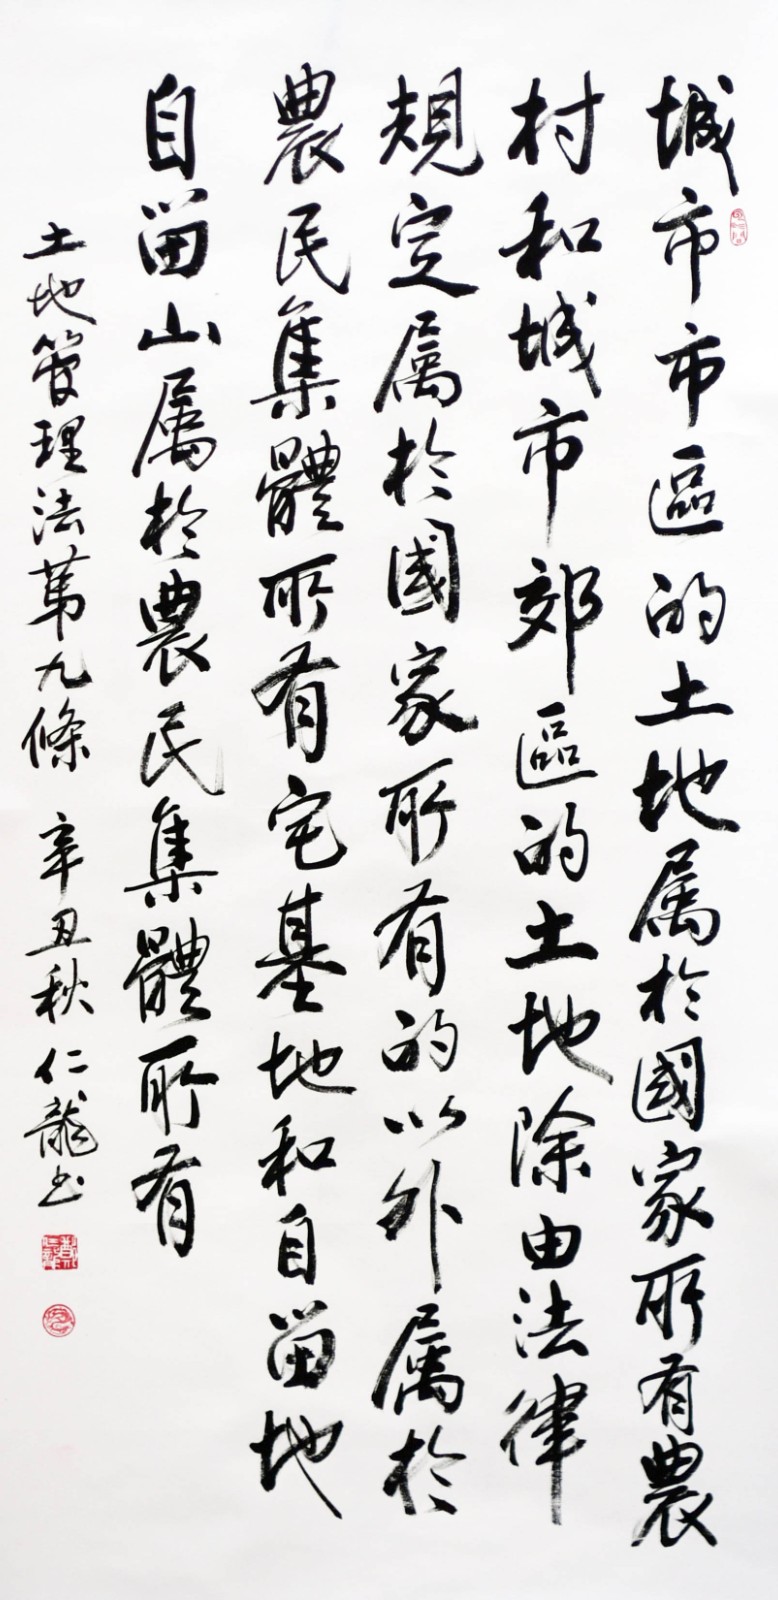 城市市區的土地属於國家所有農
村和城市郊區的土地除由法律
規定属於國家所有的以外属於
農民集體所有宅基地和自留地
自留山属於農民集體所有
土地管理法第九條 辛丑秋 仁龍书